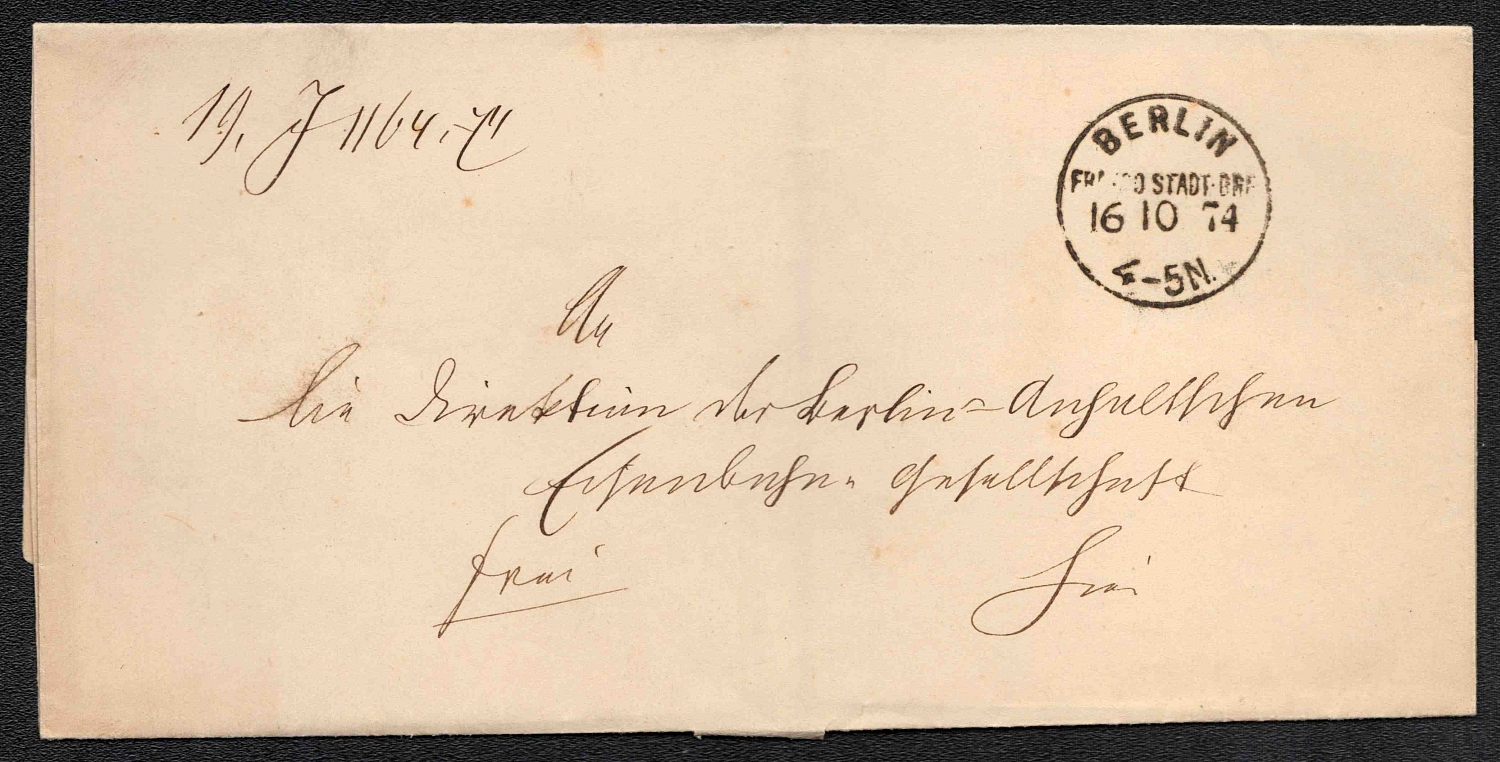 19. J 1164.74
BERLIN
FRANCO STADT-BRF
16 10 74
4-5N.
An
die Direktion der Berlin-Anhaltschen
Eisenbahn-Gesellschaft
frei
hier